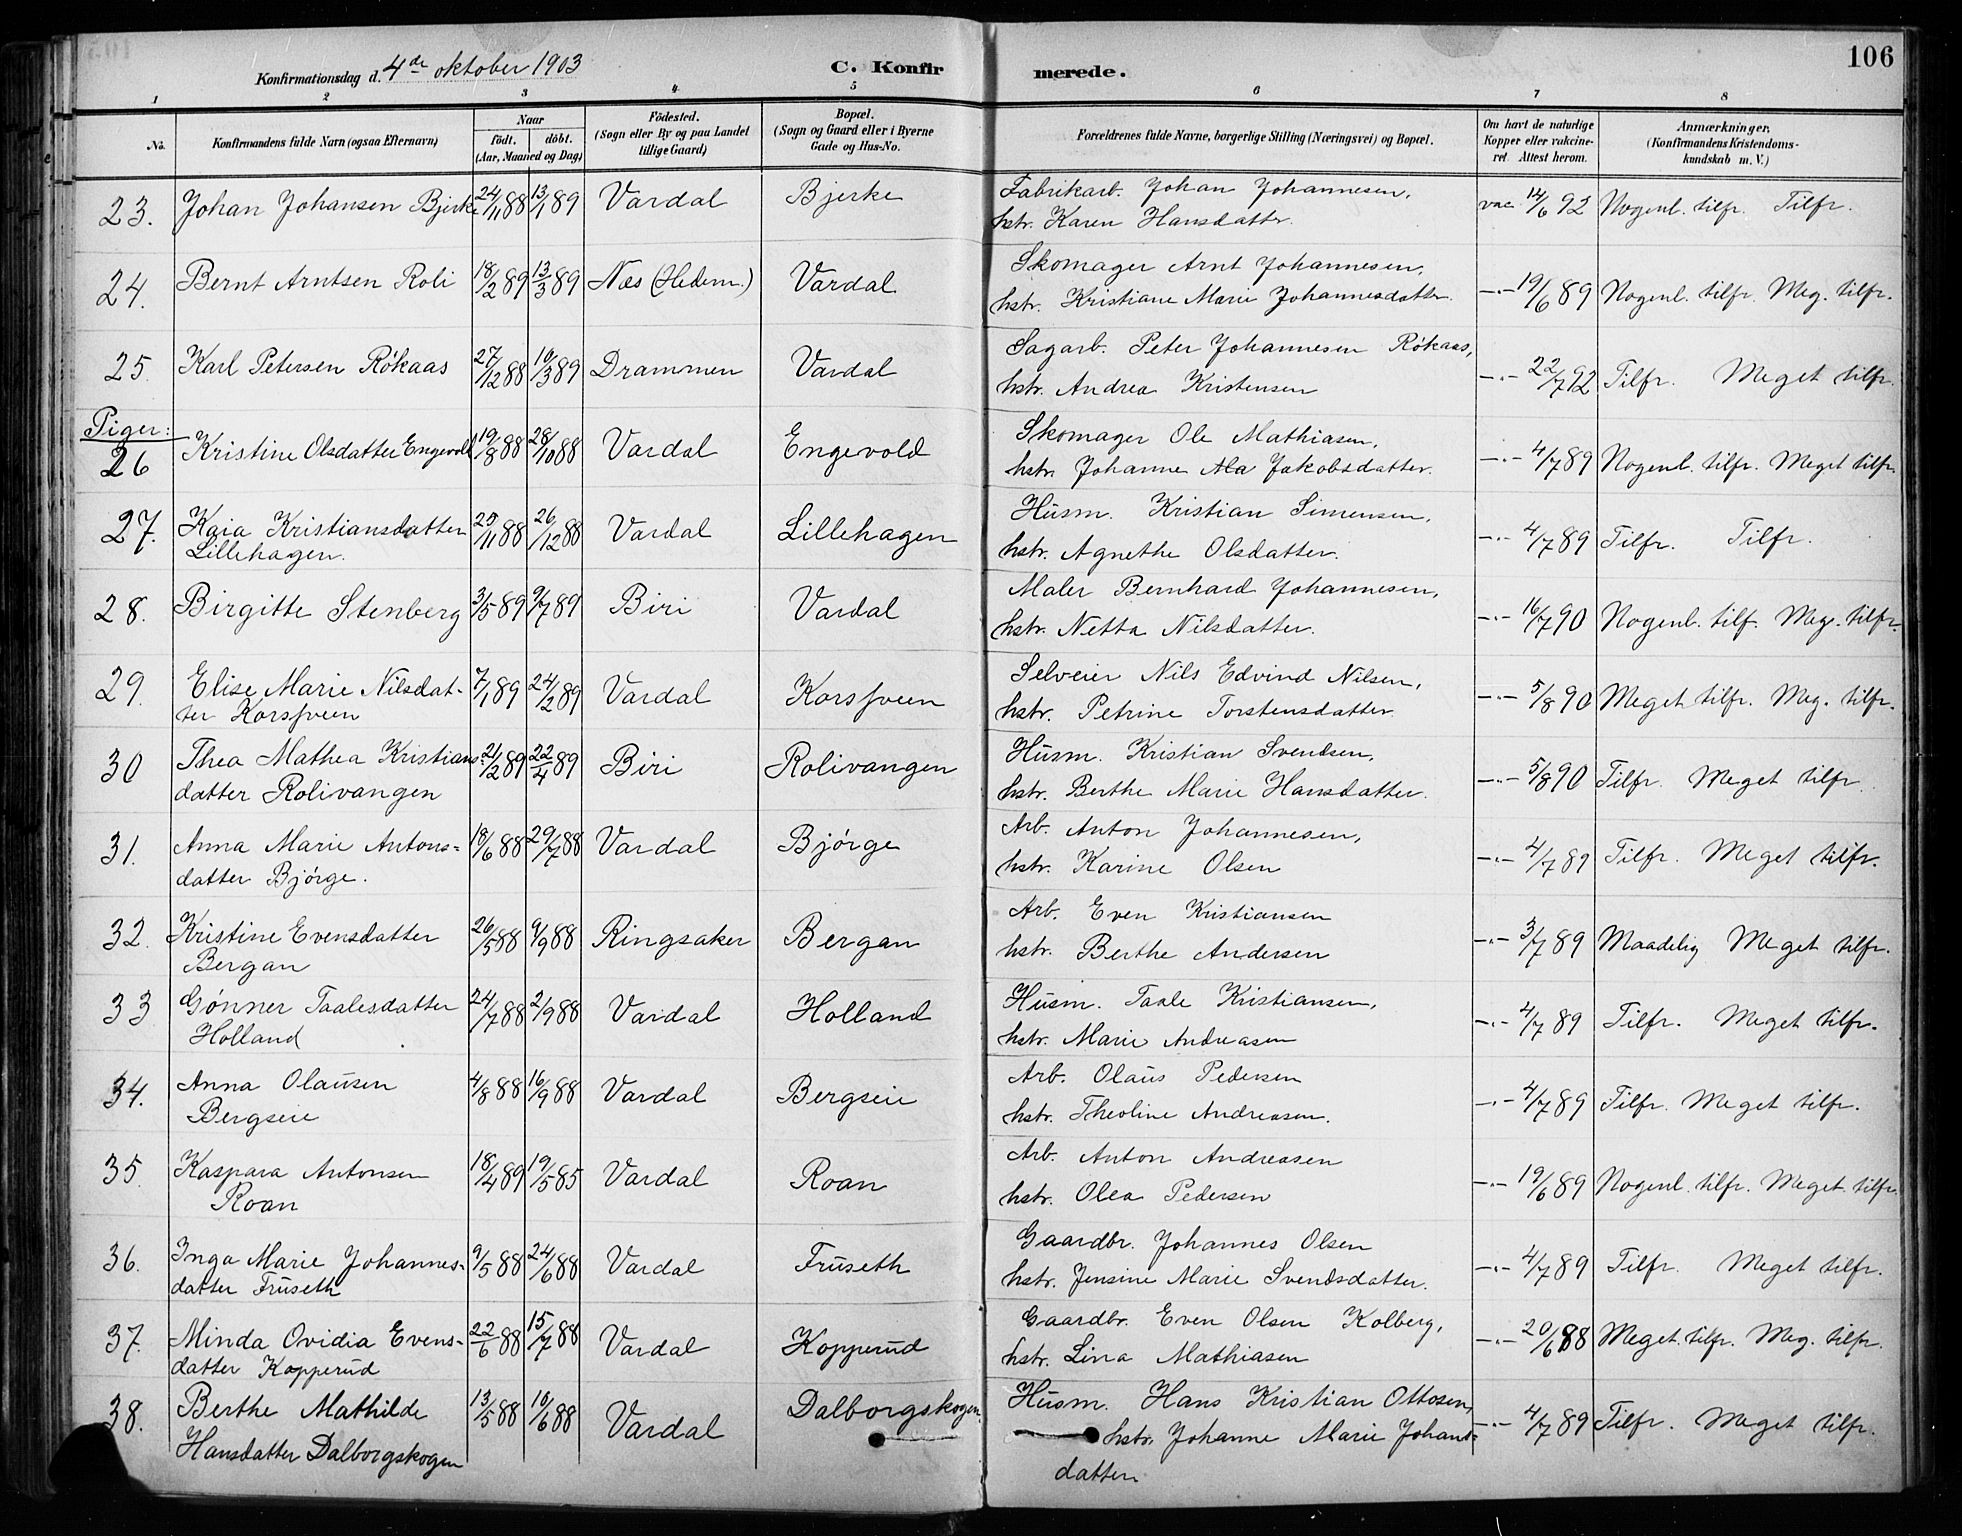 106
Konfirmationsdag d. 4de oktober 1903 C. Konfirmerede.
1 2 3 4 5 6 7 8
No. Konfirmandens fulde Navn (ogsaa Efternavn) Naar født. døbt. (Aar, Maaned og Dag) Fødested. (Sogn eller By og paa Landet tillige Gaard) Bopæl. (Sogn og Gaard eller i Byerne Gade og Hus-No. Forældrenes fulde Navne, borgerlige Stilling (Næringsvei) og Bopæl. Om havt de naturlige Kopper eller vakcineret. Attest herom. Anmærkninger. (Konfirmandens Kristendomskundskab m. V.)
23. Johan Johansen Bjerke 24/11 88 13/1 89 Vardal Bjerke Fabrikarb. Johan Johannesen, vac. 14/6 92 Nogenl. tilfr. Tilfr.
hstr. Karen Hansdatter.
24. Bernt Arntsen Roli 18/2 89 13/3 89 Næs (Hedem.) Vardal Skomager Arnt Johannesen, -"- 19/6 89 Nogenl. tilfr. Meg. tilfr.
hstr. Kristiane Marie Johannesdatter.
25. Karl Petersen Rökaas 27/12 88 10/3 89 Drammen Vardal Sagarb. Peter Johannesen Rökaas, -"- 22/7 92 Tilfr. Meget tilfr.
hstr. Andrea Kristensen
Piger:
26 Kristine Olsdatter Engevold 19/8 88 28/10 88 Vardal Engevold Skomager Ole Mathiasen, -"- 4/7 89 Nogenl. tilfr. Meget tilfr.
hstr. Johanne Ma Jakobsdatter.
27. Kaia Kristiansdatter 25/11 88 26/12 88 Vardal Lillehagen Husm. Kristian Simensen, -"- 4/7 89 Tilfr. Tilfr.
Lillehagen. hstr. Agnethe Olsdatter.
28. Birgitte Stenberg 3/5 89 9/7 89 Biri Vardal Maler Bernhard Johannesen, -"- 16/7 90 Nogenl. tilf. Meg. tilfr.
hstr. Netta Nilsdatter.
29. Elise Marie Nilsdat- 7/1 89 24/2 89 Vardal Korsfveen Selveier Nils Edvind Nilsen, -"- 5/8 90 Meget tilfr. Meg. tilfr.
ter Korsfveen hstr. Petrine Torstensdatter.
30 Thea Mathea Kristians- 21/2 89 22/4 89 Biri Rolivangen Husm. Kristian Svendsen, -"- 5/8 90 Tilfr. Meget tilfr.
datter Rolivangen hstr. Berthe Marie Hansdatter.
31. Anna Marie Antons- 18/6 88 29/7 88 Vardal Bjørge Arb. Anton Johannesen, -"- 4/7 89 Tilfr. Meget tilfr.
datter Bjørge. hstr. Karine Olsen
32. Kristine Evensdatter 26/5 88 9/9 88 Ringsaker Bergan Arb. Even Kristiansen -"- 3/7 89 Maadelig Meget tilfr.
Bergan hstr. Berthe Andersen
33 Gønner Taalesdatter 24/7 88 2/9 88 Vardal Holland Husm. Taale Kristiansen, -"- 4/7 89 Tilfr. Meget tilfr.
Holland hstr. Marie Andreasen
34. Anna Olausen 4/8 88 16/9 88 Vardal Bergseie Arb. Olaus Pedersen -"- 4/7 89 Tilfr. Meget tilfr.
Bergseie hstr. Theoline Andreasen.
35. Kaspara Antonsen 18/4 89 19/5 85 Vardal Roan Arb. Anton Andreasen -"- 19/6 89 Nogenl. tilfr. Meget tilfr.
Roan hstr. Olea Pedersen
36. Inga Marie Johannes- 9/5 88 24/6 88 Vardal Fruseth Gaardbr. Johannes Olsen -"- 4/7 89 Tilfr. Meget tilfr.
datter Fruseth hstr. Jensine Marie Svendsdatter.
37. Minda Ovidia Evens- 22/6 88 15/7 88 Vardal Kopperud Gaardbr. Even Olsen Kolberg, -"- 20/6 88 Meget tilfr. Meg. tilfr.
datter Kopperud hstr. Lina Mathiasen
38. Berthe Mathilde 13/5 88 10/6 88 Vardal Dalborgskogen. Husm. Hans Kristian Ottosen, -"- 4/7 89 Tilfr. Meget tilfr.
Hansdatter Dalborgskogen hstr. Johanne Marie Johans-
datter